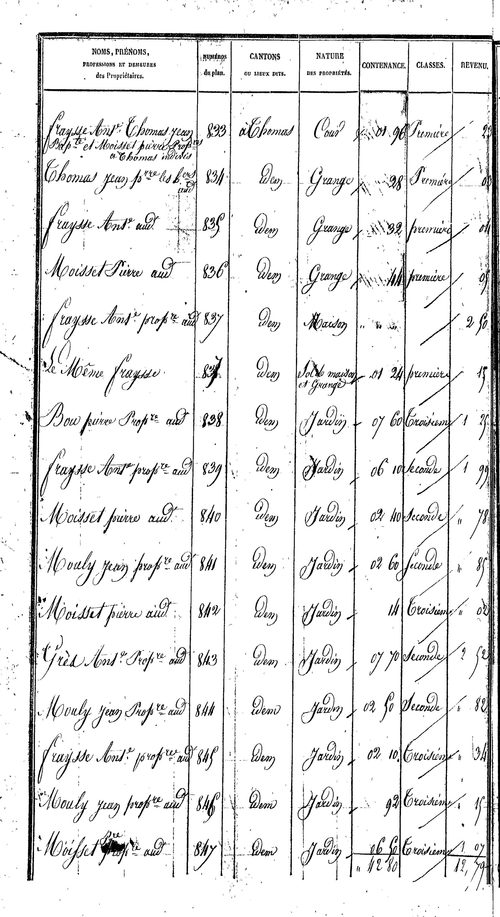 NOMS, PRÉNOMS, PROFESSIONS ET DEMEURES des Propriétaires. NUMÉROS du plan. CANTONS OU LIEUX DITS. NATURE DES PROPRIÉTÉS. CONTENANCE. CLASSES. REVENU.
fraysse Ant.e Thomas jean 833 à Thomas Cour 01 96 Première
Prop.re et Moisset pierre Prop.res
a Thomas indivis
Thomas jean p.re les h.ers aud 834 idem Grange 28 Première
fraysse Ant.e aud 835 idem Grange 32 première
Moisset Pierre aud 836 idem Grange 44 première
fraysse Ant.e prop.re aud 837 idem Maison " " 2 50
Le Même fraysse 837 idem Sol de maison et Grange 01 24 première 15
Bou pierre Prop.re aud 838 idem Jardin 07 60 Troisieme 1 25
fraysse Ant.e prop.re aud 839 idem Jardin 06 10 Seconde 1 99
Moisset pierre aud 840 idem Jardin 02 40 Seconde " 78
Mouly jean prop.re aud 841 idem Jardin 02 60 Seconde " 85
Moisset pierre aud 842 idem Jardin 14 Troisieme " 02
Grès Ant.e Prop.re aud 843 idem Jardin 07 70 Seconde 2 52
Mouly jean Prop.re aud 844 idem Jardin 02 50 Seconde " 82
fraysse Ant.e prop.re aud 845 idem Jardin 02 10 Troisieme " 34
Mouly jean prop.re aud 846 idem Jardin 92 Troisieme " 15
Moisset p.re prop.re aud 847 idem Jardin 06 50 Troisieme 1 07
" 42 80 12, 79